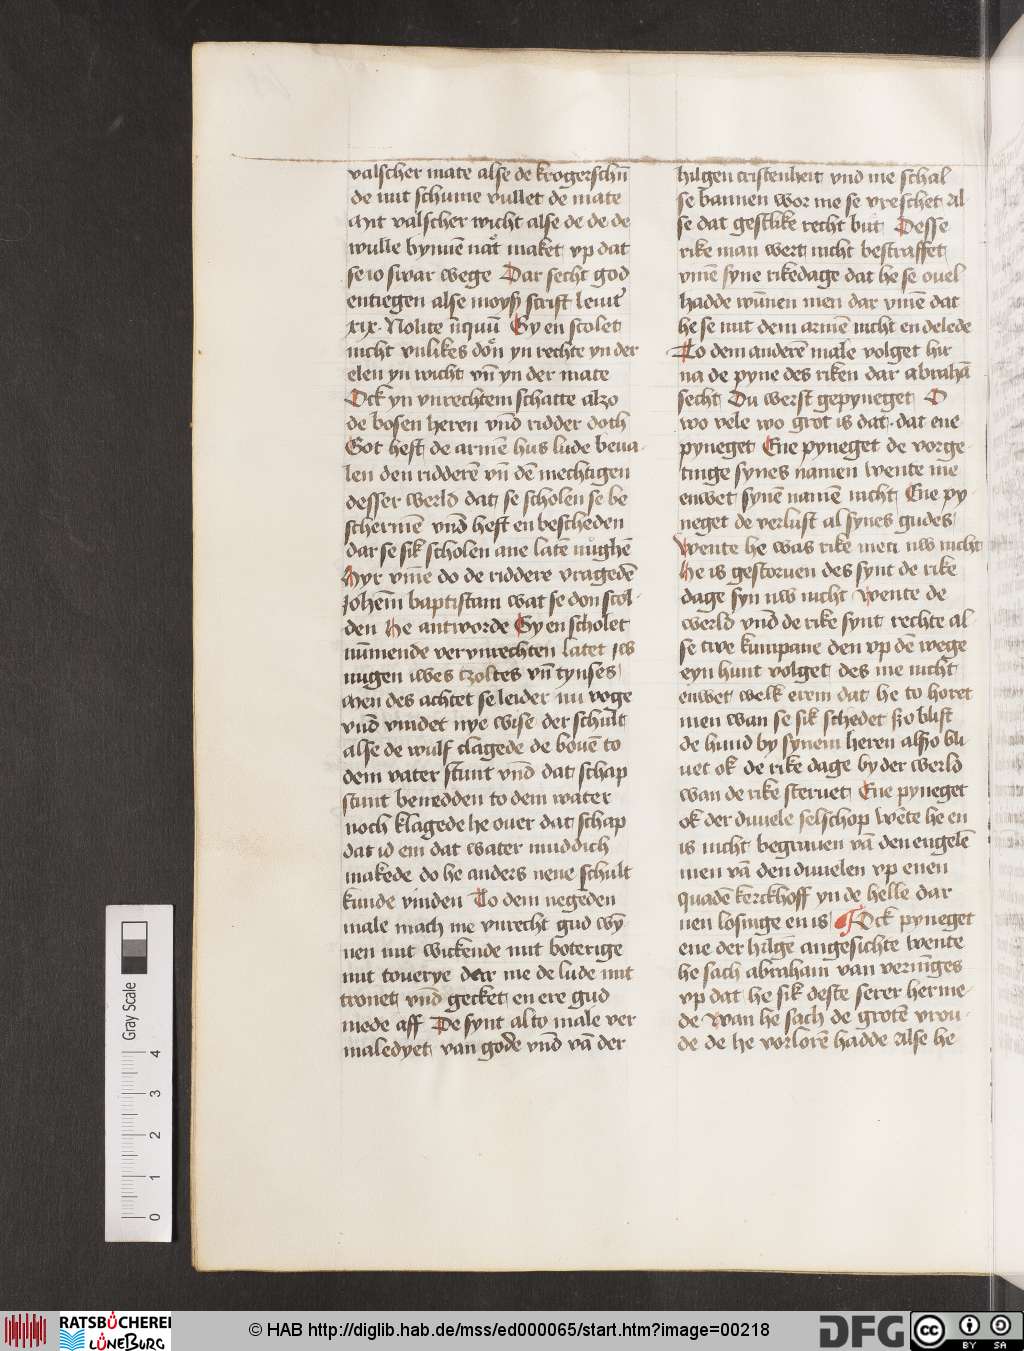 valscher mate alse de krogerschn̄
de mit schume vullet de mate
Mit valscher wicht alse de de de
wulle bynnē nat maket vp dat
se io swar wege Dar secht god
entiegen alse moyses scrift leuit
xix. Nolite Gy en scolet
nicht vnlikes don yn rechte yn der
elen yn wicht vn̄ yn der mate
Ock yn vnrechtem schatte alzo
de bosen heren vnd ridder doth
Got heft de armē hus lude beua-
len den ridderē vn̄ dē mechtigen
desser werld dat se scholen se be
schermē vnd heft en bescheden
dar se sik scholen ane latē nughē
Hyr vme do de riddere vragedē
Johem̄ baptistam wat se don scol-
den He antworde Gy en scholet
nūmende vervnrechten latet iw
nugen iwes tzoltes vn̄ tynses
Men des achtet se leider nu voge
vnd vindet nye wise der schult
alse de wulf clagede de bouē to
dem water stunt vnd dat schap
stunt benedden to dem water
noch klagede he ouer dat schap
dat id em dat water muddich
makede do he anders nene schult
kunde vinden To dem negeden
male mach me vnrecht gud wȳ
nen mit wickende mit boterige
mit touerye dar me de lude mit
tronet vnd gecket en ere gud
mede aff De synt alto male ver
maledyet van gode vnd vā der
hilgen cristenheit vnd me schal
se bannen wor me se vreschet Al-
se dat gestlike recht but Desse
rike man wert nicht bestraffet
vmē syne rikedage dat he se ouel
hadde wūnen men dar vmē dat
he se mit dem armē nicht en delede
To dem anderē male volget hir
na de pyne des riken dar abrahā
secht Du werst gepyneget O
wo vele wo grot is dat. dat ene
pyneget Ene pyneget de vorge-
tinge synes namen wente me
enwet synē namē nicht Ene py-
neget de verlust al synes gudes
Wente he was rike men nw nicht
He is gestoruen des synt de rike
dage syn nw nicht Wente de
werld vnd de rike synt rechte al-
se twe kumpane den vp dē wege
eyn hunt volget des me nicht
enwet welk erem dat he to horet
men wan se sik schedet szo blift
de hund by synem heren alszo bli-
uet ok de rike dage by der werld
wan de rike steruet Ene pyneget
ok der duuele selschop wēte he en
is nicht begrauen vā den engelē
men vā den duuelen vp enen
quadē kerckhoff yn de helle dar
nen losinge en is Ock pyneget
ene der hilgē angesichte wente
he sach abraham van vernīges
vp dat he sik deste serer herme-
de Wan he sach de grotē vrou-
de de he vorlorē hadde Alse he
Gray Scale
0 1 2 3 4
RATSBÜCHEREI
LÜNEBURG
© HAB http://diglib.hab.de/mss/ed000065/start.htm?image=00218
DFG
cc
BY SA